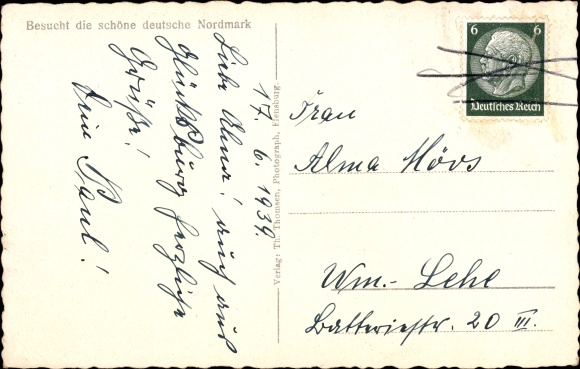 Besucht die schöne deutsche Nordmark
17. 6. 1939.
Liebe Alma! auch aus
Glücksburg herzliche
Grüße!
Dein Paul!
Verlag: Th. Thomsen, Photograph, Flensburg.
6 6
Deutsches Reich
Frau
Alma Hövs
Wm.-Lehe
Batteriestr. 20 III.